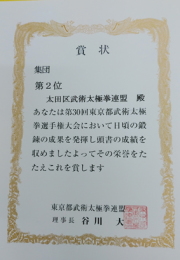 賞状
集団
第２位
太田区武術太極拳連盟 殿
あなたは第30回東京都武術太極
拳選手権大会において日頃の鍛
錬の成果を発揮し頭書の成績を
収めましたよってその栄誉をた
たえこれを賞します
東京都武術太極拳連盟
理事長 谷川 大